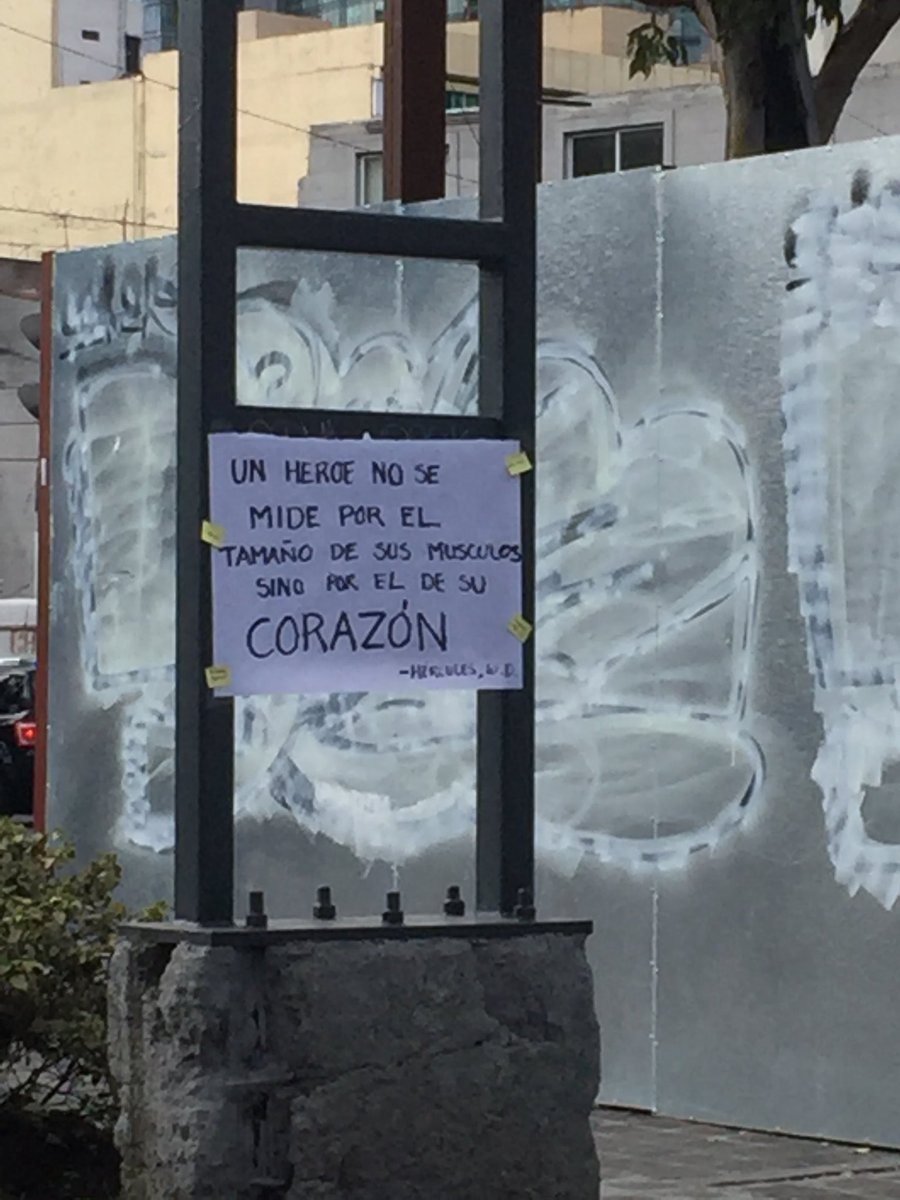 UN HEROE NO SE
MIDE POR EL
TAMAÑO DE SUS MUSCULOS
SINO POR EL DE SU
CORAZÓN
-HERCULES, W.D.